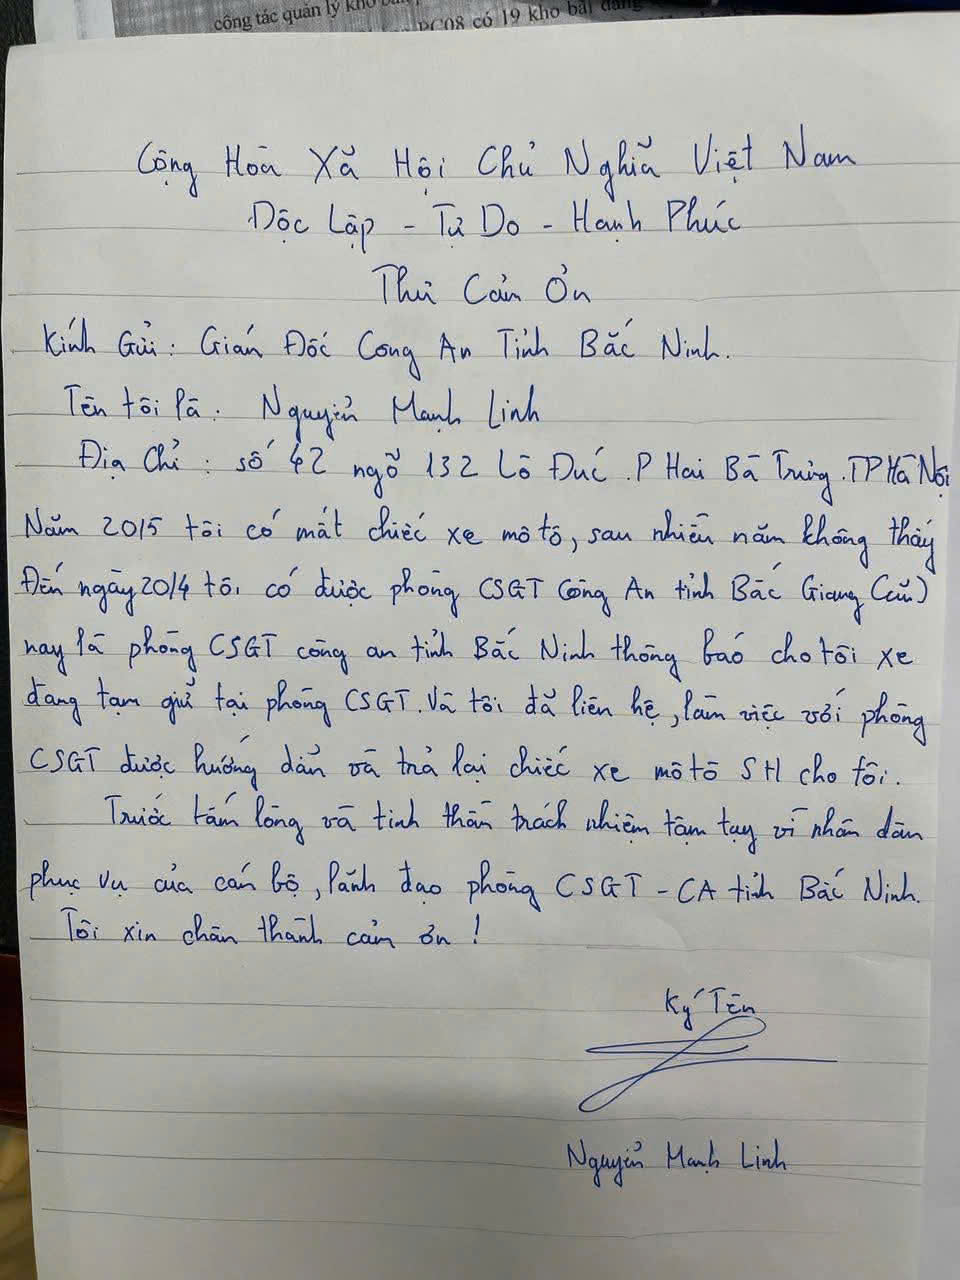 công tác quản lý kho
PC08 có 19 kho bãi đang
Cộng Hòa Xã Hội Chủ Nghĩa Việt Nam
Độc Lập - Tự Do - Hạnh Phúc
Thư Cảm Ơn
Kính Gửi: Gián Đốc Công An Tỉnh Bắc Ninh.
Tên tôi là: Nguyễn Mạnh Linh
Địa Chỉ: số 42 ngõ 132 Lò Đúc. P Hai Bà Trưng. TP Hà Nội
Năm 2015 tôi có mất chiếc xe mô tô, sau nhiều năm không thấy
Đến ngày 20/4 tôi có được phòng CSGT Công An tỉnh Bắc Giang (cũ)
nay là phòng CSGT công an tỉnh Bắc Ninh thông báo cho tôi xe
đang tạm giữ tại phòng CSGT. Và tôi đã liên hệ, làm việc với phòng
CSGT được hướng dẫn và trả lại chiếc xe mô tô SH cho tôi.
Trước tấm lòng và tinh thần trách nhiệm tậm tụy vì nhân dân
phục vụ của cán bộ, lãnh đạo phòng CSGT - CA tỉnh Bắc Ninh.
Tôi xin chân thành cảm ơn!
Ký Tên
Nguyễn Mạnh Linh